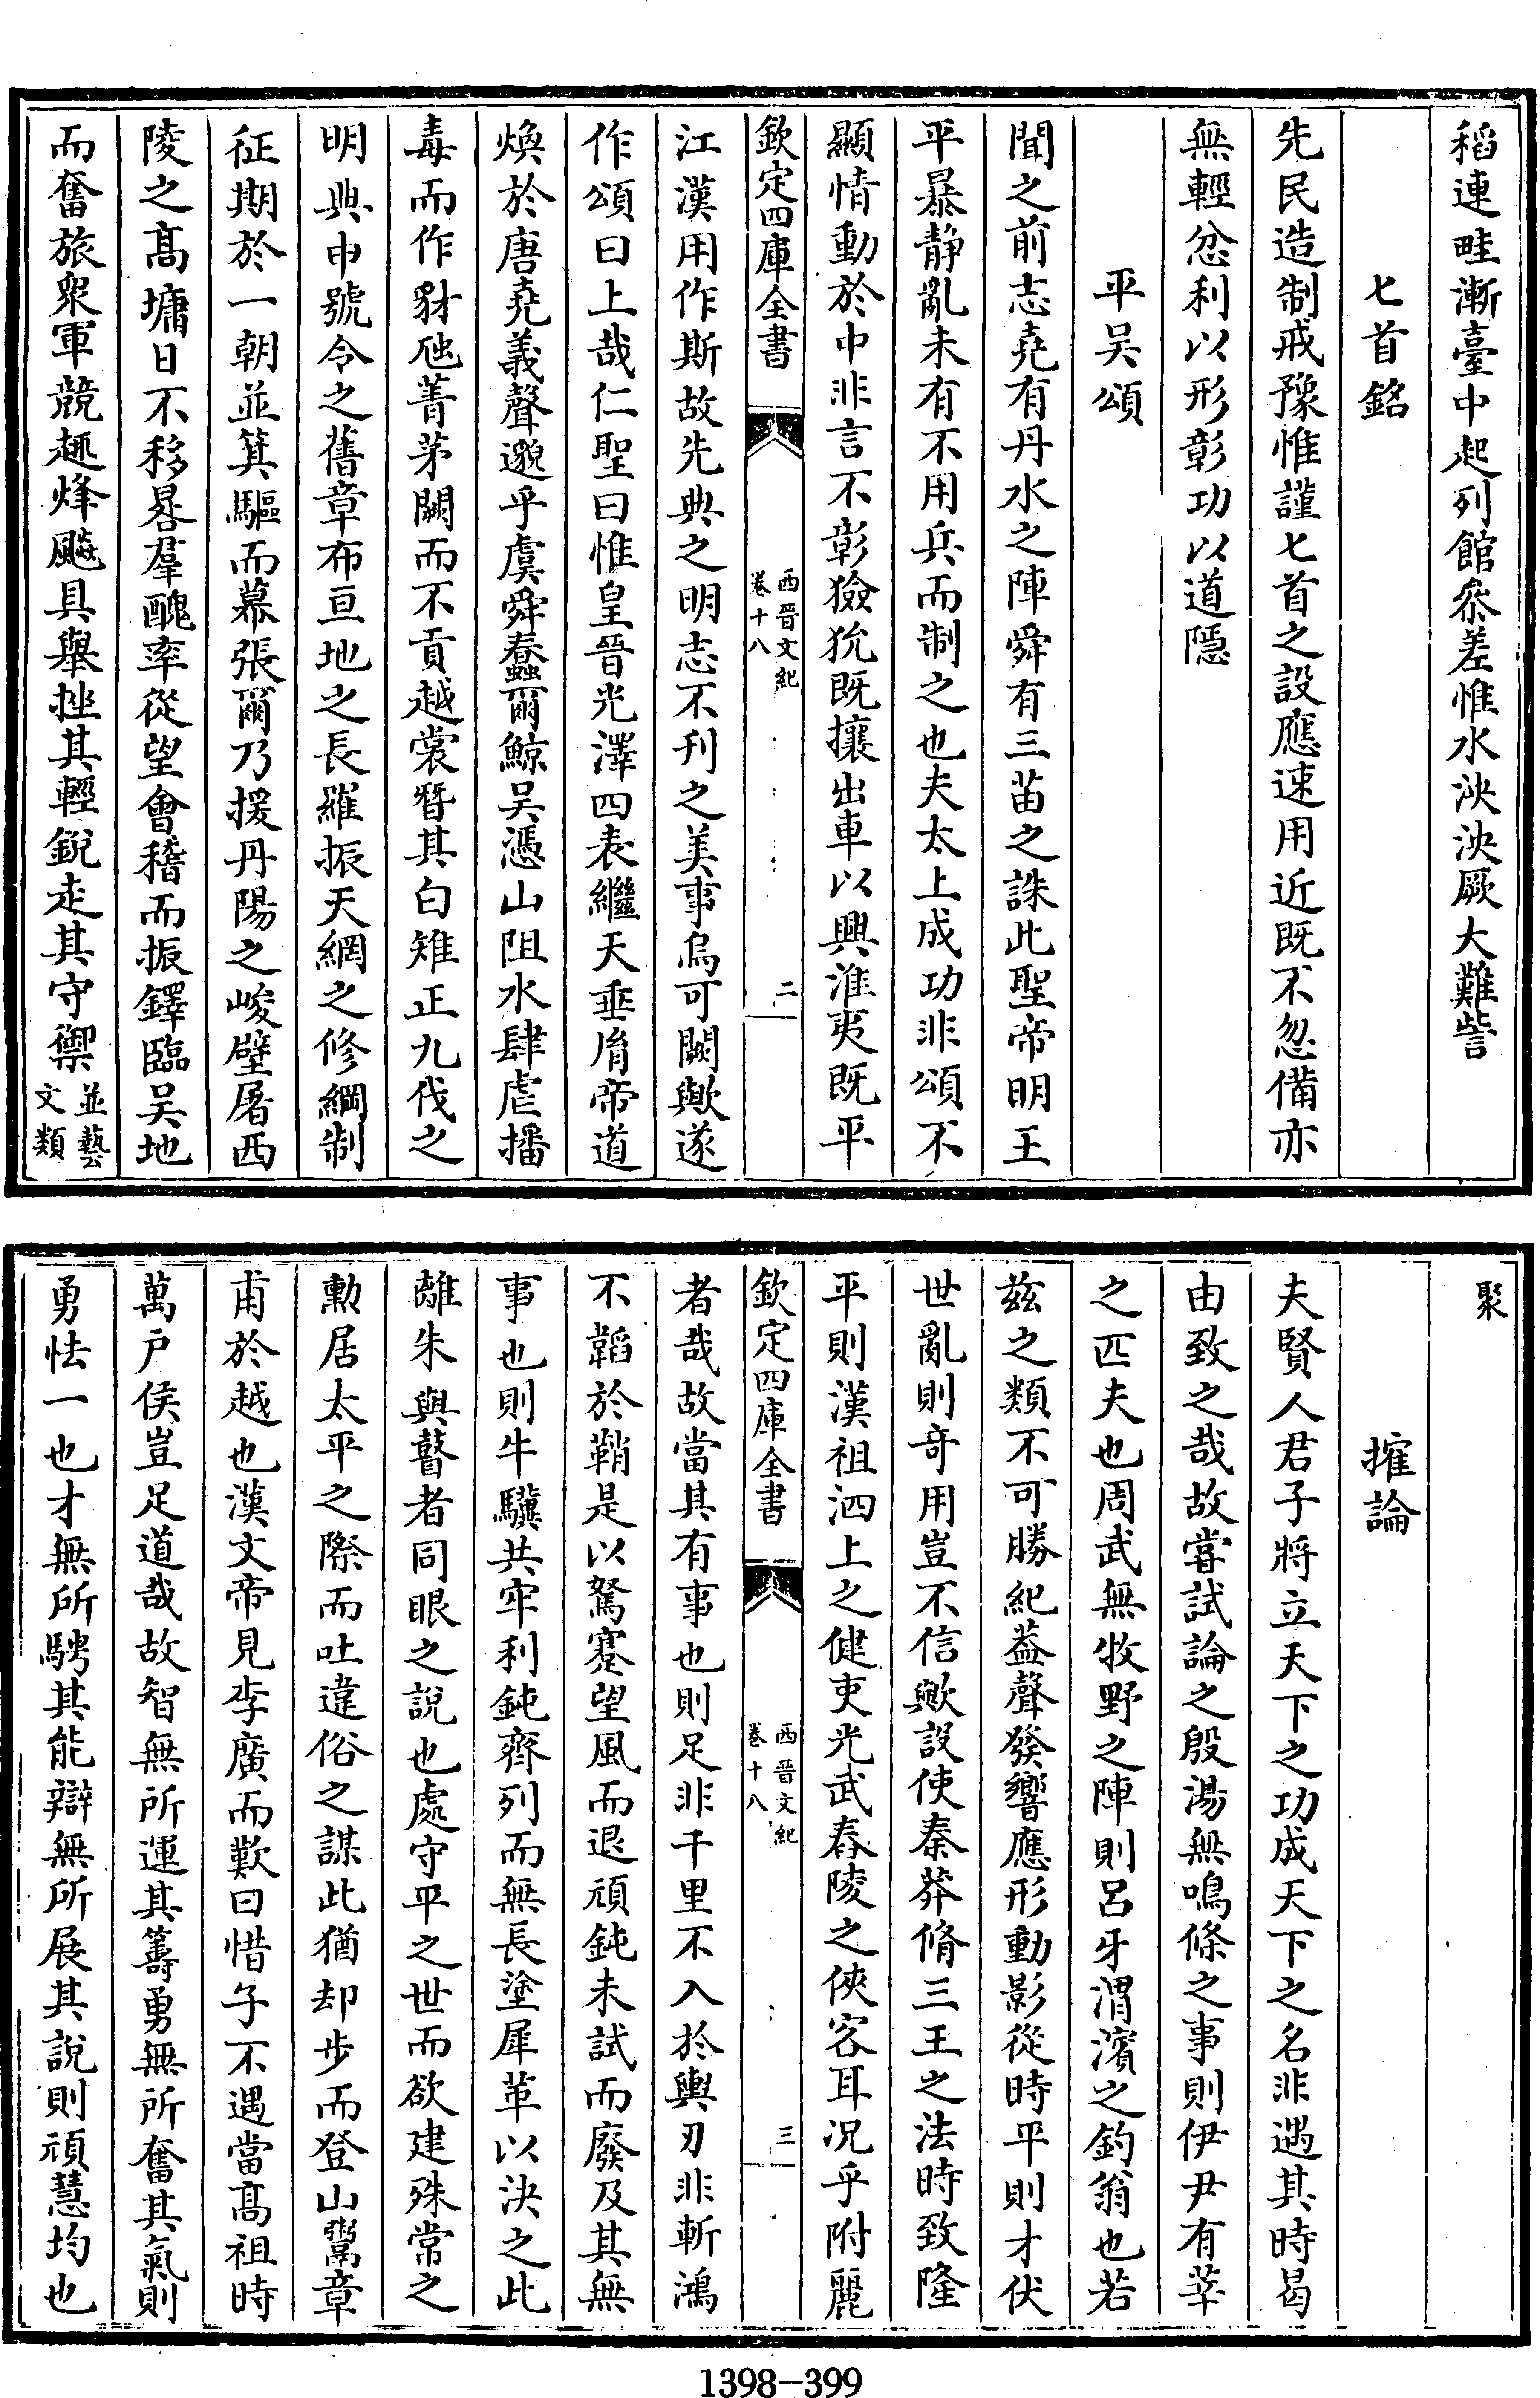 稻連畦漸臺中起列館參差惟水泱泱厥大難訾
七首銘
先民造制戒豫惟謹七首之設應速用近既不忽備亦
無輕忿利以形彰功以道隱
平吳頌
聞之前志堯有丹水之陣舜有三苗之誅此聖帝明王
平暴静亂未有不用兵而制之也夫太上成功非頌不
顯情動於中非言不彰獫狁既攘出車以興淮夷既平
欽定四庫全書
西晉文紀
卷十八
二
江漢用作斯故先典之明志不刋之美事烏可闕歟遂
作頌曰上哉仁聖曰惟皇晉光澤四表繼天垂胤帝道
煥於唐堯義聲邈乎虞舜蠢爾鯨吳憑山阻水肆虐播
毒而作豺虺菁茅闕而不貢越裳替其白雉正九伐之
明典申號令之舊章布亘地之長羅振天網之修綱制
征期於一朝並箕驅而慕張爾乃援丹陽之峻壁屠西
陵之髙墉日不移晷羣醜率從望會稽而振鐸臨吳地
而奮旅衆軍競趣烽飈具舉挫其輕銳走其守禦並藝
文類
聚
搉論
夫賢人君子將立天下之功成天下之名非遇其時曷
由致之哉故嘗試論之殷湯無鳴條之事則伊尹有莘
之匹夫也周武無牧野之陣則呂牙渭濱之釣翁也若
兹之類不可勝紀葢聲發響應形動影從時平則才伏
世亂則奇用豈不信歟設使秦莽脩三王之法時致隆
平則漢祖泗上之健吏光武舂陵之俠客耳况乎附麗
欽定四庫全書
西晉文紀
卷十八
三
者哉故當其有事也則足非千里不入於輿刃非斬鴻
不韜於鞘是以駑蹇望風而退頑鈍未試而廢及其無
事也則牛驥共牢利鈍齊列而無長塗犀革以決之此
離朱與瞽者同眼之說也處守平之世而欲建殊常之
勲居太平之際而吐違俗之謀此猶却步而登山鬻章
甫於越也漢文帝見李廣而歎曰惜子不遇當髙祖時
萬户侯豈足道哉故智無所運其籌勇無所奮其氣則
勇怯一也才無所騁其能辯無所展其說則頑慧均也
1398-399